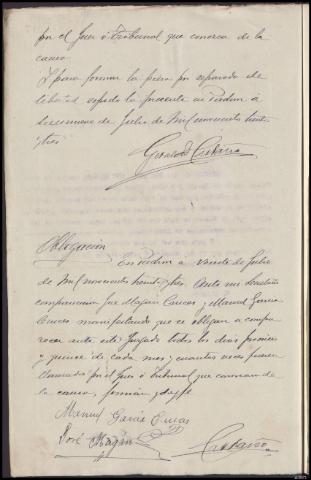 por el Juez ó Tribunal que conozca de la
causa
Y para formar la pieza por separado de
libertad expido la presente en Padron á
diecinueve de Julio de Mil novecientos treinta
y tres
Gerardo
Obligacion
En Padron á veinte de Julio
de Mil novecientos treinta y tres. Ante mi Secretario
comparecieron José Magán Cuicas y Manuel Garcia
Cuicas manifestando que se obligan a compa
recer ante este Juzgado todos los dias primeros
y quince de cada mes y cuantas veces fueren
llamados por el Juez ó Tribunal que conozcan de
la causa, firman y doy fe
Manuel Garcia Cuicas
José Magán